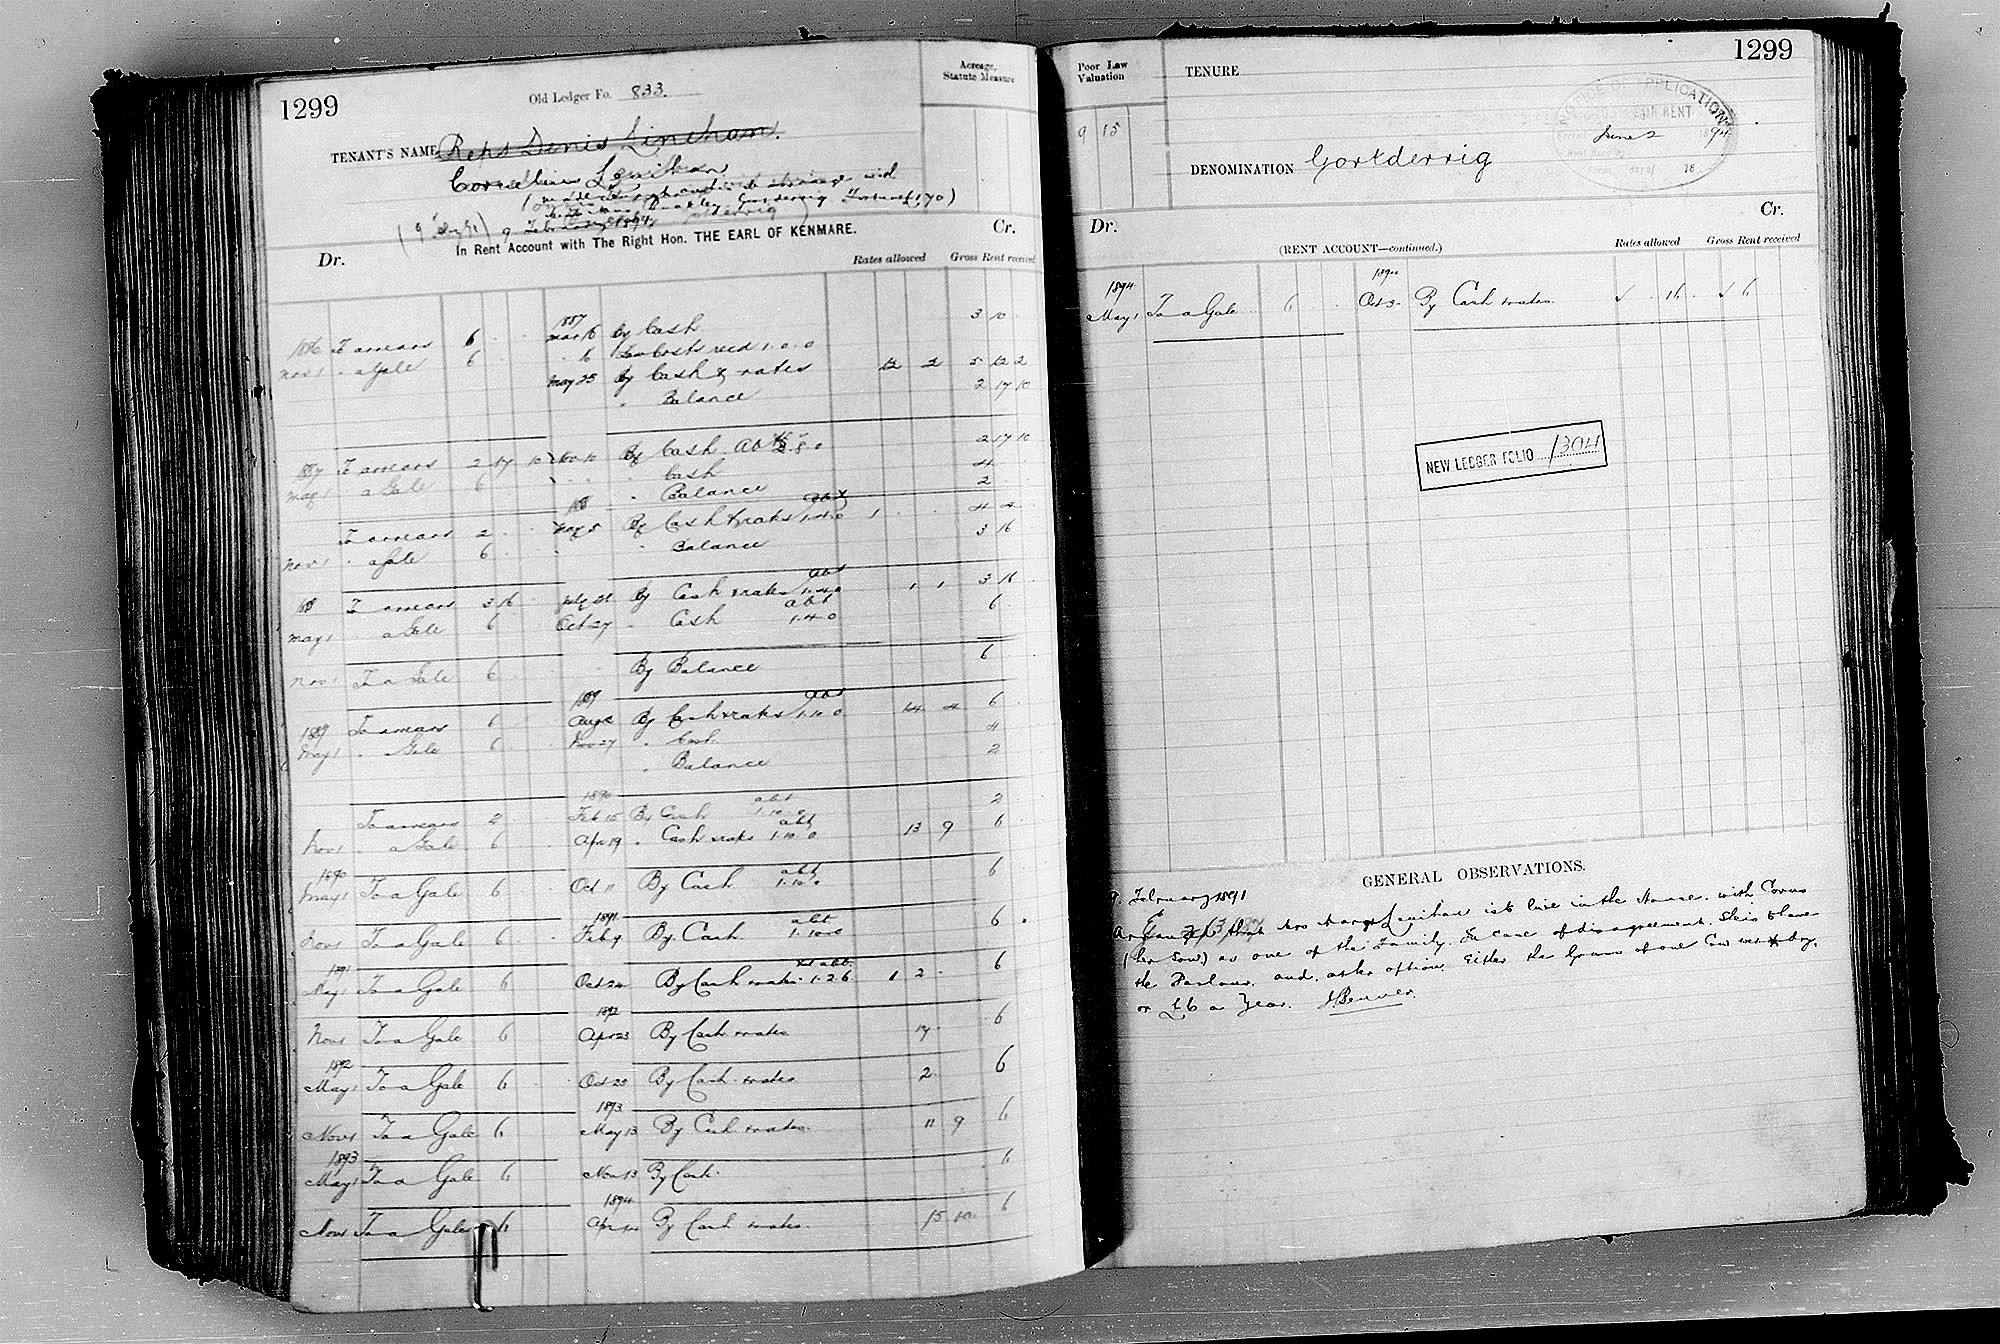 1299
Old Ledger Fo. 833.
Acreage,
Statute Measure
TENANT'S NAME Reps Denis Linehan.
Cornelius Lenihan
Fortune £170)
9 February 1891
In Rent Account with The Right Hon. THE EARL OF KENMARE.
Dr. Cr.
Rates allowed Gross Rent received
1887
1886 To arrears 6 Mar 16 By Cash 3 10
Nov 1 " a Gale 6 " 16 Law Costs recd 1.0.0
May 25 By Cash & rates 12 2 5 12 2
" Balance 2 17 10
1887 To arrears 2 17 10 Nov 10 By Cash 2 17 10
May 1 " a Gale 6 " Cash 4
" Balance 2
188
To arrears 2 May 5 By Cash & rates 1.4.0 1 4 4
Nov 1 " a Gale 6 " Balance 3 16
abt
188 To arrears 3 16 By Cash & rates 1.4.0 1 1 3 16
abt
May 1 " a Gale 6 Oct 27 " Cash 1.4.0 6
Nov 1 To a Gale 6 By Balance 6
1889 abt
1889 To arrears 6 Aug 2 By Cash & rates 1.10.0 14 4 6
May 1 " a Gale 6 Nov 27 " Cash 4
" Balance 2
1890 abt
To arrears 2 Feb 15 By Cash 1.10.0 2
abt
Nov 1 " a Gale 6 Apr 19 " Cash & rates 1.10.0 13 9 6
1890 abt
May 1 To a Gale 6 Oct 11 By Cash 1.10.0 6
1891 abt
Nov 1 To a Gale 6 Feb 9 By Cash 1.10.0 6
1891 abt
May 1 To a Gale 6 Oct 24 By Cash & rates 1.2.6 1 2 6
1892
Nov 1 To a Gale 6 Apr 23 By Cash & rates 17 6
1892
May 1 To a Gale 6 Oct 25 By Cash & rates 2 6
1893
Nov 1 To a Gale 6 May 13 By Cash & rates 11 9 6
1893
May 1 To a Gale 6 Nov 13 By Cash 6
1894
Nov 1 To a Gale 6 Apr By Cash & rates 15 10 6
Poor Law
Valuation
9 15
TENURE
1299
NOTICE OF APPLICATION
TO FIX FAIR RENT
June 2 1894
day of 18
DENOMINATION Gortderrig
Dr. Cr.
(RENT ACCOUNT—continued.) Rates allowed Gross Rent received
1894 1894
May 1 To a Gale 6 Oct 3 By Cash & rates 16 6
NEW LEDGER FOLIO 1304
GENERAL OBSERVATIONS.
9. February 1891
that Mrs Margt Lenihan is to live in the House with Corns
(her Son) as one of the Family. In case of disagreement. She is to have
the Parlour. and. at her option. Either the Grass of one Cow wet & dry.
or £6 a Year.